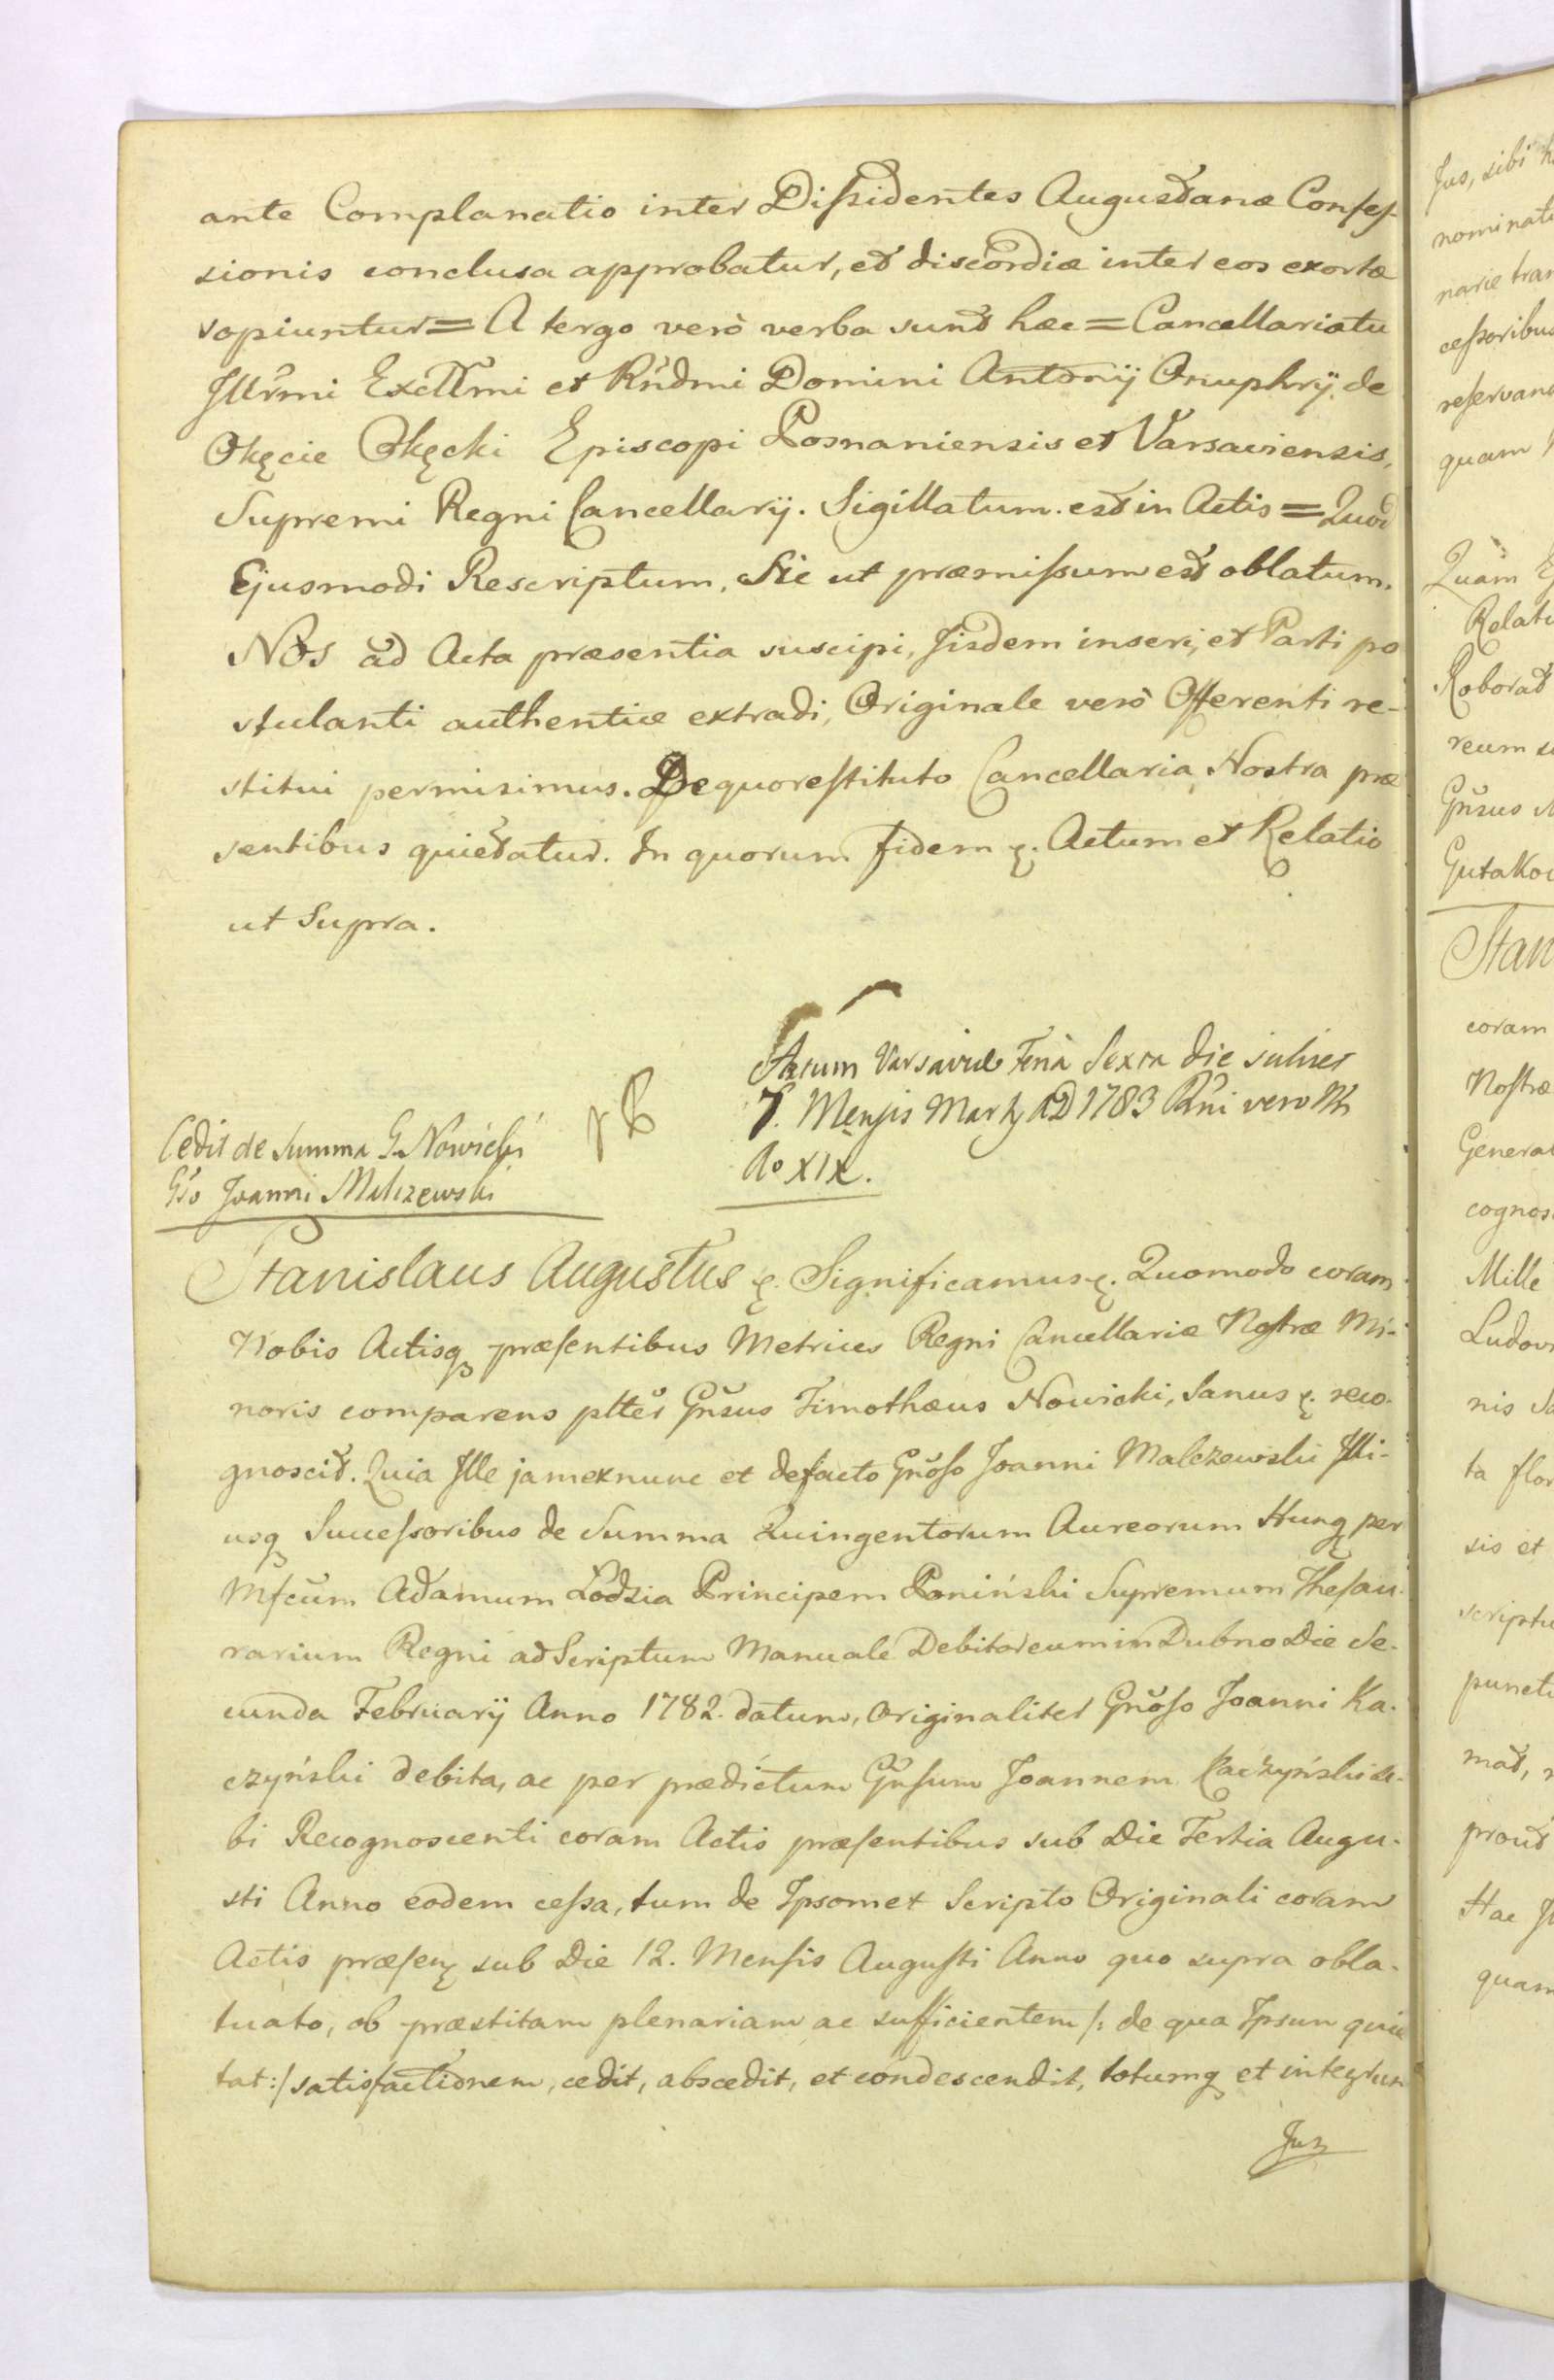 ante Complanatio inter Dißidentes Augustanæ Confes-
sionis conclusa approbatur, et discordiæ inter eos exortæ
sopiuntur = A tergo verò verba sunt hæc = Cancellariatu
Illr̃mi Excell̃mi et Rñdmi Domini Antonij Onuphrij de
Okęcie Okęcki Episcopi Posnaniensis et Varsaviensis,
Supremi Regni Cancellarij. Sigillatum est in Actis = Quod
Ejusmodi Rescriptum, Sic ut præmißum est oblatum.
Nos ad Acta præsentia suscipi, Jisdem inseri, et Parti po
stulanti authentice extradi, Originale verò Offerenti re-
stitui permisimus. De quo restituto Cancellaria Nostra præ
sentibus quietatur. In quorum fidem ę. Actum et Relatio
ut Supra.
Actum Varsaviæ Feria Sexta die
7. Mensis Martij AD 1783 Rñi vero Nr̃i
Ao XIX.
Cedit de Summa G. Nowicki
Gso Joanni Malczewski
Stanislaus Augustus ę. Significamus ę. Quomodo coram
Nobis Actisq præsentibus Metrices Regni Cancellariæ Nostræ Mi-
noris comparens pltẽr Gñsus Timothæus Nowicki, Sanus ę. reco-
gnoscit. Quia Ille jam ex nunc et de facto Gñoso Joanni Malczewski Illi-
usq Succeßoribus de Summa Quingentorum Aureorum Hung per
Mfcũm Adamum Lodzia Principem Poniński Supremum Thesau-
rarium Regni ad Scriptum Manuale Debitoreum in Dubno Die Se-
cunda Februarij Anno 1782. datum, Originaliter Gñoso Joanni Ka-
czyński debita, ac per prædictum Gñsum Joannem Kaczyński si-
bi Recognoscenti coram Actis præsentibus sub Die Tertia Augu-
sti Anno eodem ceßa, tum de Ipsomet Scripto Originali coram
Actis præsenę sub Die 12. Mensis Augusti Anno quo supra obla-
tuato, ob præstitam plenariam ac sufficientem /: de qua Ipsum quie
tat :/ satisfactionem, cedit, abscedit, et condescendit, totumq et integrum
Jus
Jus, sibi
nominat
narie tran
ceßoribus
reservan
quam
Quam
Relati
Roborat
reum
Gñsus
Gutakow
Stan
coram
Nostræ
General
cognos
Mille
Ludov
nis
ta flor
sis et
scriptu
puncti
mat,
prout
Hac
quam